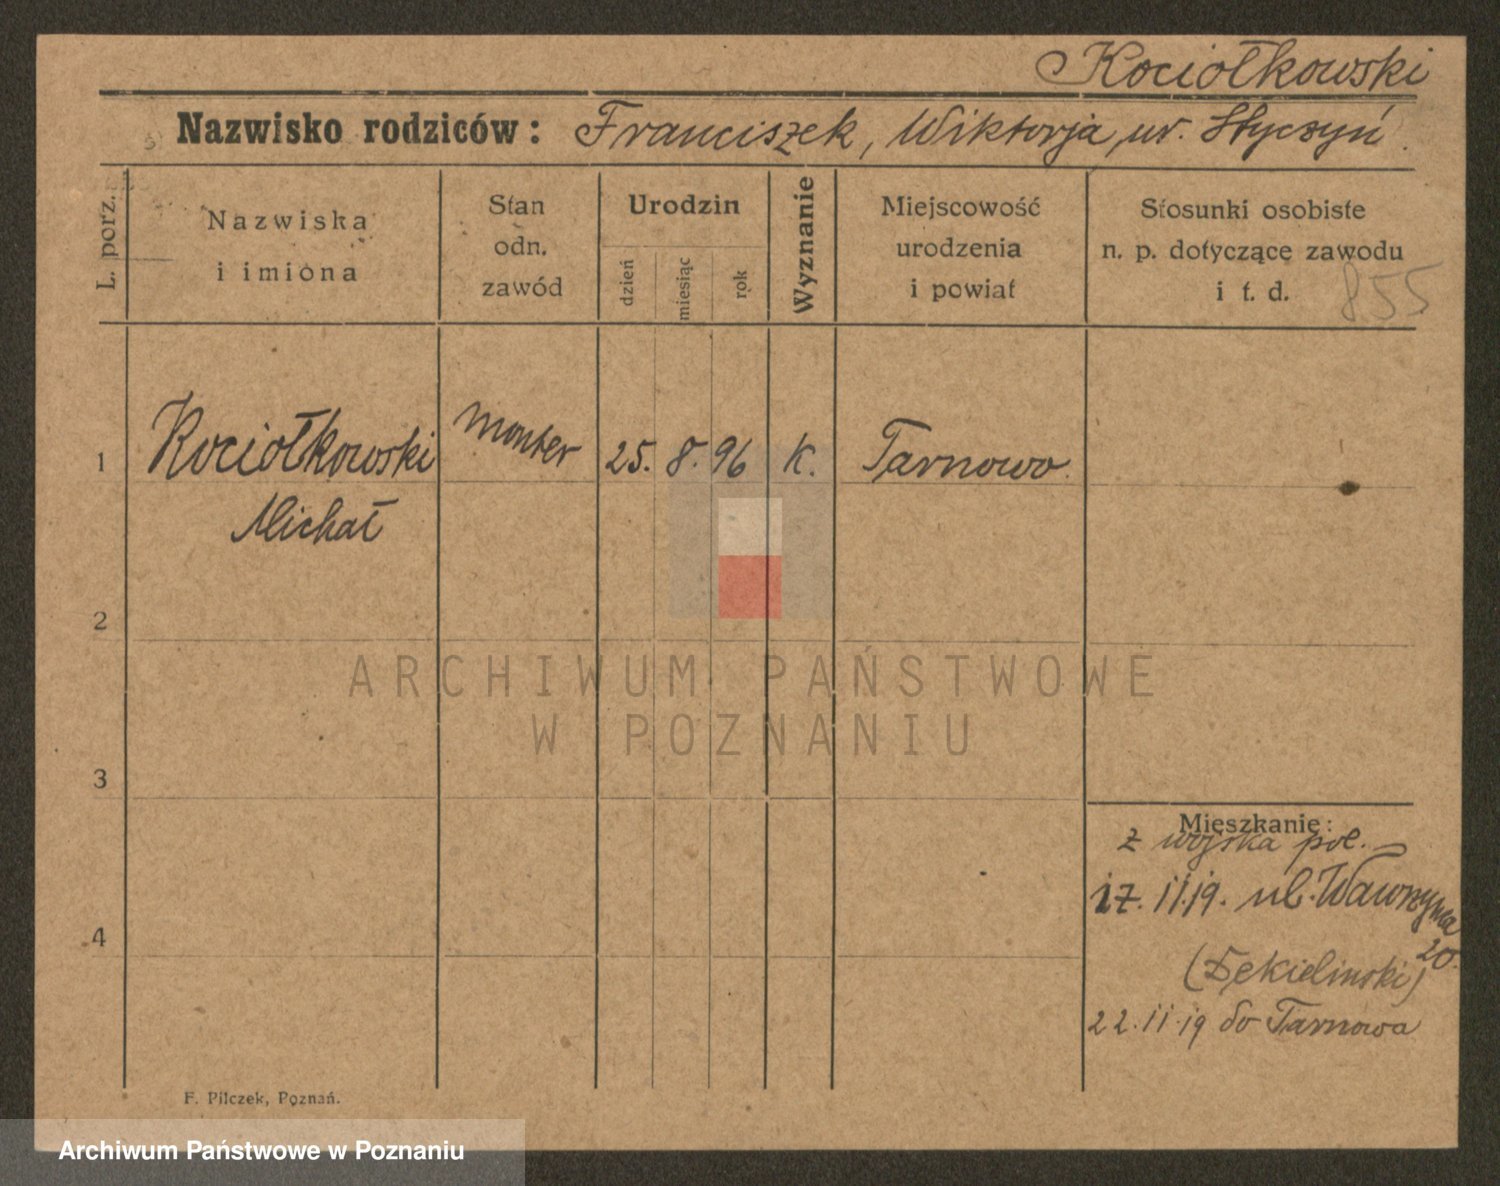 Kociołkowski
Nazwisko rodziców: Franciszek, Wiktorja, ur. Styczyń.
L. porz.
Nazwiska
i imiona
Stan
odn.
zawód
Urodzin
dzień
miesiąc
rok
Wyznanie
Miejscowość
urodzenia
i powiat
Stosunki osobiste
n. p. dotyczące zawodu
i t. d.
855
1 Kociołkowski monter 25. 8. 96 K. Tarnowo.
Michał
2
3
4
Mieszkanie:
z wojska pol.
17. 11.19. ul. Wawrzyńca
20.
22.11.19 do Tarnowa
F. Pilczek, Poznań.
ARCHIWUM PAŃSTWOWE
W POZNANIU
Archiwum Państwowe w Poznaniu